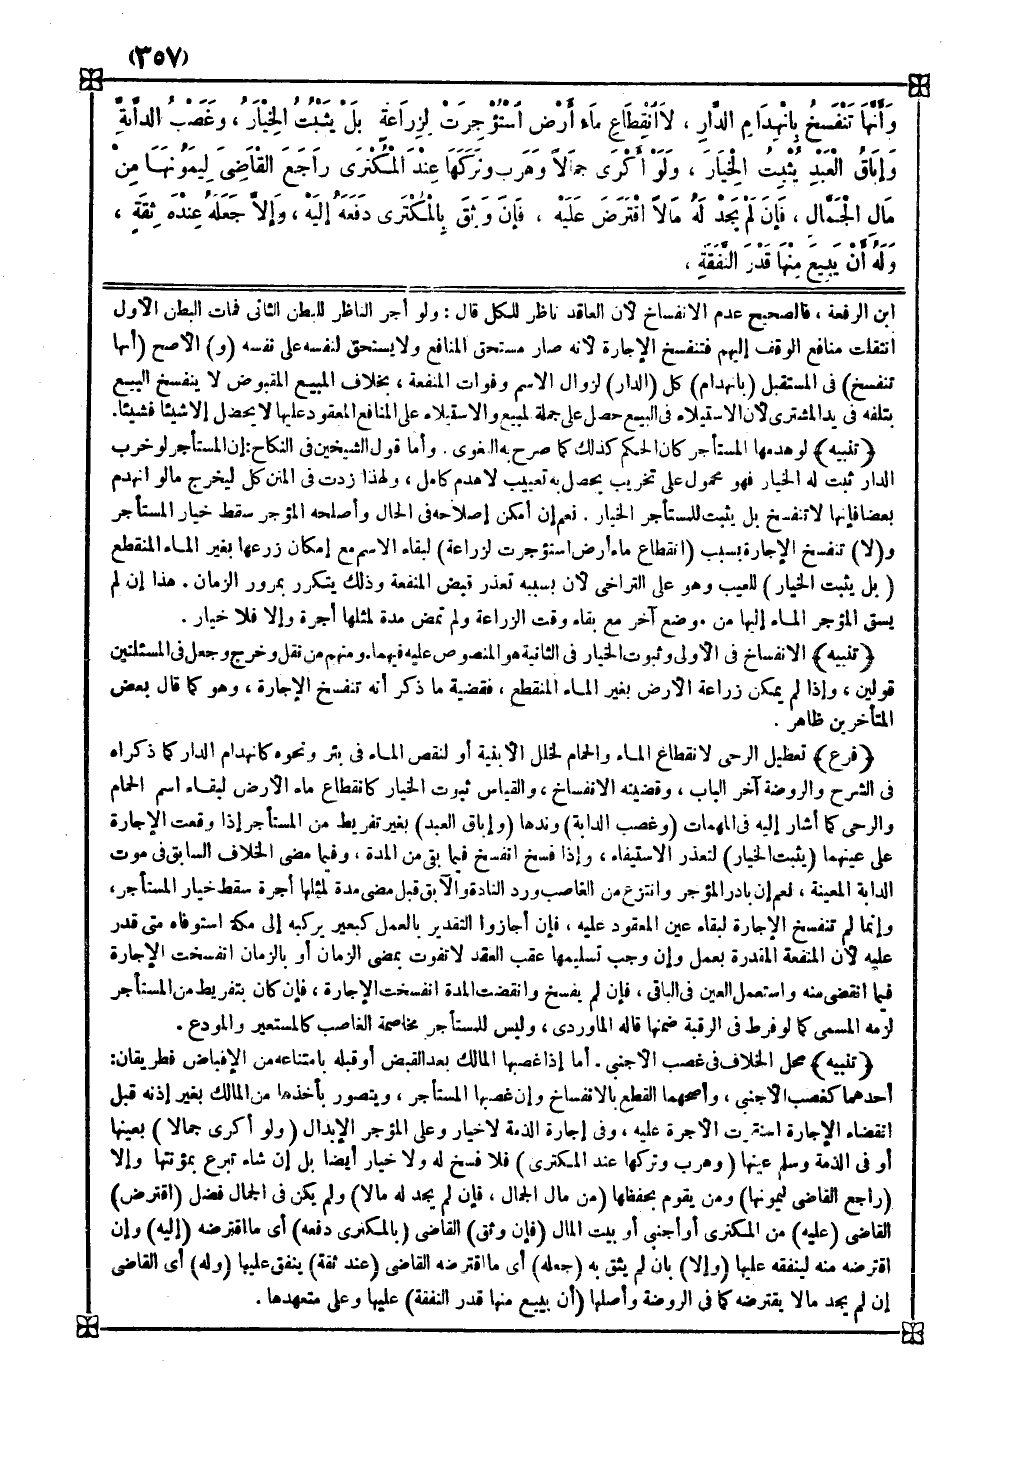 (٣٥٧)
وَأَنَّهَا تَنْفَسِخُ بِانْهِدَامِ الدَّارِ ، لَا انْقِطَاعِ مَاءِ أَرْضٍ اسْتُؤْجِرَتْ لِزِرَاعَةٍ بَلْ يَثْبُتُ الْخِيَارُ ، وَغَصْبُ الدَّابَّةِ
وَإِبَاقُ الْعَبْدِ يُثْبِتُ الْخِيَارَ ، وَلَوْ أَكْرَى جِمَالًا وَهَرَبَ وَتَرَكَهَا عِنْدَ الْمُكْتَرَى رَاجَعَ الْقَاضِيَ لِيَمُونَهَا مِنْ
مَالِ الْجَمَّالِ ، فَإِنْ لَمْ يَجِدْ لَهُ مَالًا اقْتَرَضَ عَلَيْهِ ، فَإِنْ وَثِقَ بِالْمُكْتَرَى دَفَعَهُ إِلَيْهِ ، وَإِلَّا جَعَلَهُ عِنْدَ ثِقَةٍ ،
وَلَهُ أَنْ يَبِيعَ مِنْهَا قَدْرَ النَّفَقَةِ ،
ابن الرفعة ، فالصحيح عدم الانفساخ لأن العاقد ناظر للكل قال : ولو أجر الناظر للبطن الثانى فمات البطن الأول
انتقلت منافع الوقف إليهم فتنفسخ الإجارة لأنه صار مستحق المنافع ولا يستحق لنفسه على نفسه (و) الأصح (أنها
تنفسخ) فى المستقبل (بانهدام) كل (الدار) لزوال الاسم وفوات المنفعة ، بخلاف المبيع المقبوض لا ينفسخ البيع
بتلفه فى يد المشترى لأن الاستيلاء فى البيع حصل على جملة المبيع والاستيلاء على المنافع المعقود عليها لا يحصل إلا شيئا فشيئا.
﴿تنبيه﴾ لو هدمها المستأجر كان الحكم كذلك كما صرح به البغوى . وأما قول الشيخين فى النكاح: إن المستأجر لو خرب
الدار ثبت له الخيار فهو محمول على تخريب يحصل به تعييب لا هدم كامل ، ولهذا زدت فى المتن كل ليخرج مالو انهدم
بعضا فإنها لا تنفسخ بل يثبت للمستأجر الخيار . نعم إن أمكن إصلاحه فى الحال وأصلحه المؤجر سقط خيار المستأجر
و(لا) تنفسخ الإجارة بسبب (انقطاع ماء أرض استؤجرت لزراعة) لبقاء الاسم مع إمكان زرعها بغير الماء المنقطع
( بل يثبت الخيار ) للعيب وهو على التراخى لأن بسببه تعذر قبض المنفعة وذلك يتكرر بمرور الزمان . هذا إن لم
يسق المؤجر الماء إليها من موضع آخر مع بقاء وقت الزراعة ولم تمض مدة لمثلها أجرة وإلا فلا خيار .
﴿تنبيه﴾ الانفساخ فى الأولى وثبوت الخيار فى الثانية هو المنصوص عليه فيهما. ومنهم من نقل وخرج وجعل فى المسئلتين
قولين ، وإذا لم يمكن زراعة الأرض بغير الماء المنقطع ، فقضية ما ذكر أنه تنفسخ الإجارة ، وهو كما قال بعض
المتأخرين ظاهر .
﴿فرع﴾ تعطيل الرحى لانقطاع الماء والحمام لخلل الأبنية أو لنقص الماء فى بئر ونحوه كانهدام الدار كما ذكراه
فى الشرح والروضة آخر الباب ، وقضيته الانفساخ ، والقياس ثبوت الخيار كانقطاع ماء الأرض لبقاء اسم الحمام
والرحى كما أشار إليه فى المهمات (وغصب الدابة) وندها (وإباق العبد) بغير تفريط من المستأجر إذا وقعت الإجارة
على عينهما (يثبت الخيار) لتعذر الاستيفاء ، وإذا فسخ انفسخ فيما بقى من المدة ، وفيما مضى الخلاف السابق فى موت
الدابة المعينة ، نعم إن بادر المؤجر وانتزع من الغاصب ورد النادة والآبق قبل مضى مدة لمثلها أجرة سقط خيار المستأجر،
وإنما لم تنفسخ الإجارة لبقاء عين المعقود عليه ، فإن أجازوا التقدير بالعمل كبعير يركبه إلى مكة استوفاه متى قدر
عليه لأن المنفعة المقدرة بعمل وإن وجب تسليمها عقب العقد لا تفوت بمضى الزمان أو بالزمان انفسخت الإجارة
فيما انقضى منه واستعمل العين فى الباقى ، فإن لم يفسخ وانقضت المدة انفسخت الإجارة ، فإن كان بتفريط من المستأجر
لزمه المسمى كما لو فرط فى الرقبة ضمنها قاله الماوردى ، وليس للمستأجر مخاصمة الغاصب كالمستعير والمودع .
﴿تنبيه﴾ محل الخلاف فى غصب الأجنبى . أما إذا غصبها المالك بعد القبض أو قبله بامتناعه من الإقباض فطريقان:
أحدهما كغصب الأجنبى ، وأصحهما القطع بالانفساخ وإن غصبها المستأجر ، ويتصور بأخذها من المالك بغير إذنه قبل
انقضاء الإجارة استقرت الأجرة عليه ، وفى إجارة الذمة لا خيار وعلى المؤجر الإبدال ( ولو أكرى جمالا ) بعينها
أو فى الذمة وسلم عينها ( وهرب وتركها عند المكترى ) فلا فسخ له ولا خيار أيضا بل إن شاء تبرع بمؤنتها وإلا
(راجع القاضى ليمونها) ومن يقوم بحفظها (من مال الجمال ، فإن لم يجد له مالا) ولم يكن فى الجمال فضل (اقترض)
القاضى (عليه) من المكترى أو أجنبى أو بيت المال (فإن وثق) القاضى (بالمكترى دفعه) أى ما اقترضه (إليه) وإن
اقترضه منه لينفقه عليها (وإلا) بأن لم يثق به (جعله) أى ما اقترضه القاضى (عند ثقة) ينفق عليها (وله) أى القاضى
إن لم يجد مالا يقترضه كما فى الروضة وأصلها (أن يبيع منها قدر النفقة) عليها وعلى متعهدها .